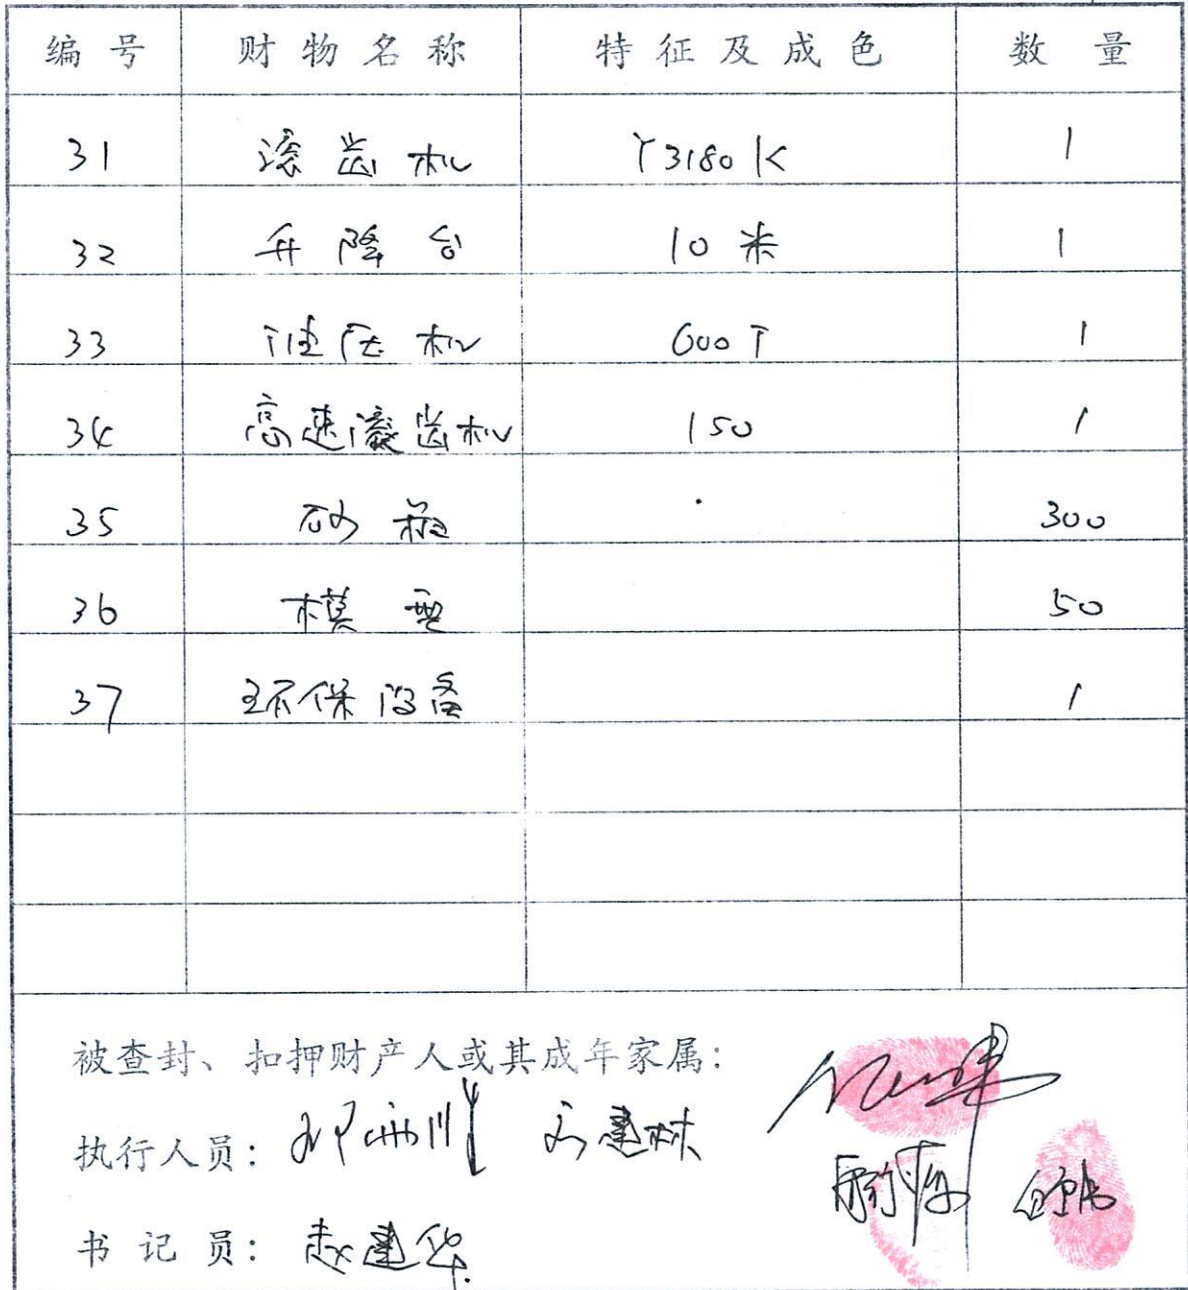 编号 财物名称 特征及成色 数量
31 滚齿机 Y3180K 1
32 升降台 10米 1
33 油压机 600T 1
34 高速滚齿机 150 1
35 砂箱 300
36 模型 50
37 环保设备 1
被查封、扣押财产人或其成年家属：
执行人员：
书记员：赵建华